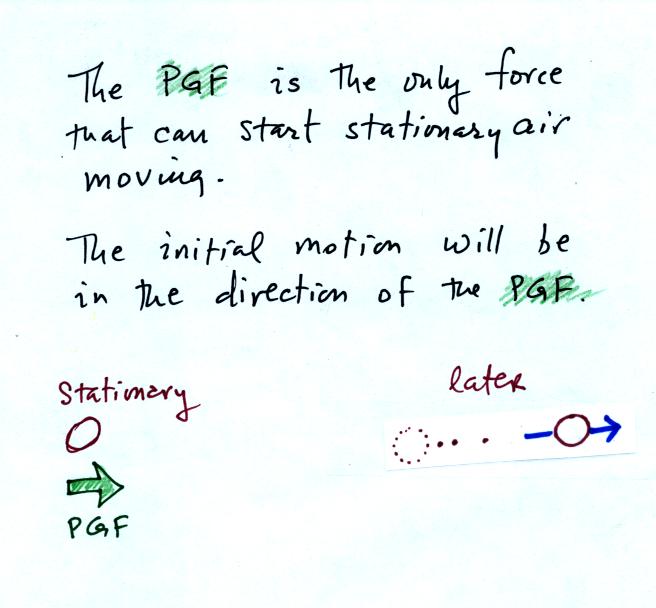 The PGF is the only force
that can start stationary air
moving.
The initial motion will be
in the direction of the PGF.
Stationary
later
PGF